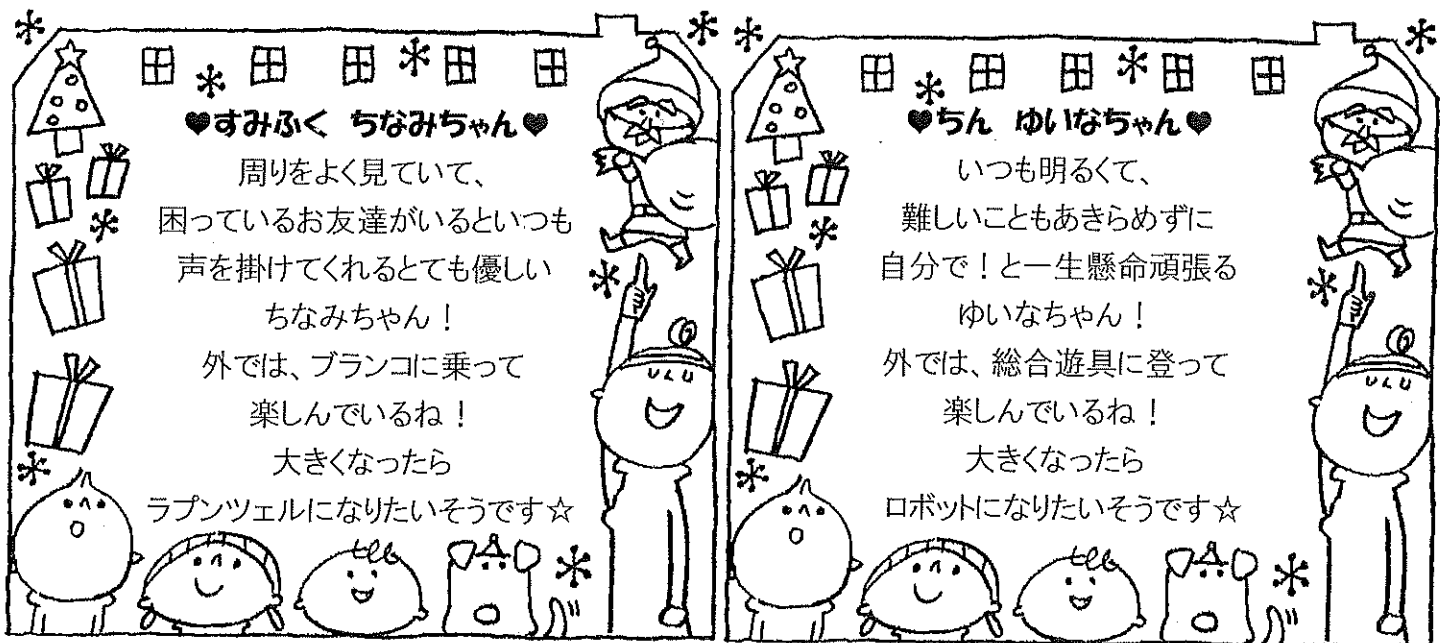 ♥すみふく ちなみちゃん♥
周りをよく見ていて、
困っているお友達がいるといつも
声を掛けてくれるとても優しい
ちなみちゃん！
外では、ブランコに乗って
楽しんでいるね！
大きくなったら
ラプンツェルになりたいそうです☆
♥ちん ゆいなちゃん♥
いつも明るくて、
難しいこともあきらめずに
自分で！と一生懸命頑張る
ゆいなちゃん！
外では、総合遊具に登って
楽しんでいるね！
大きくなったら
ロボットになりたいそうです☆